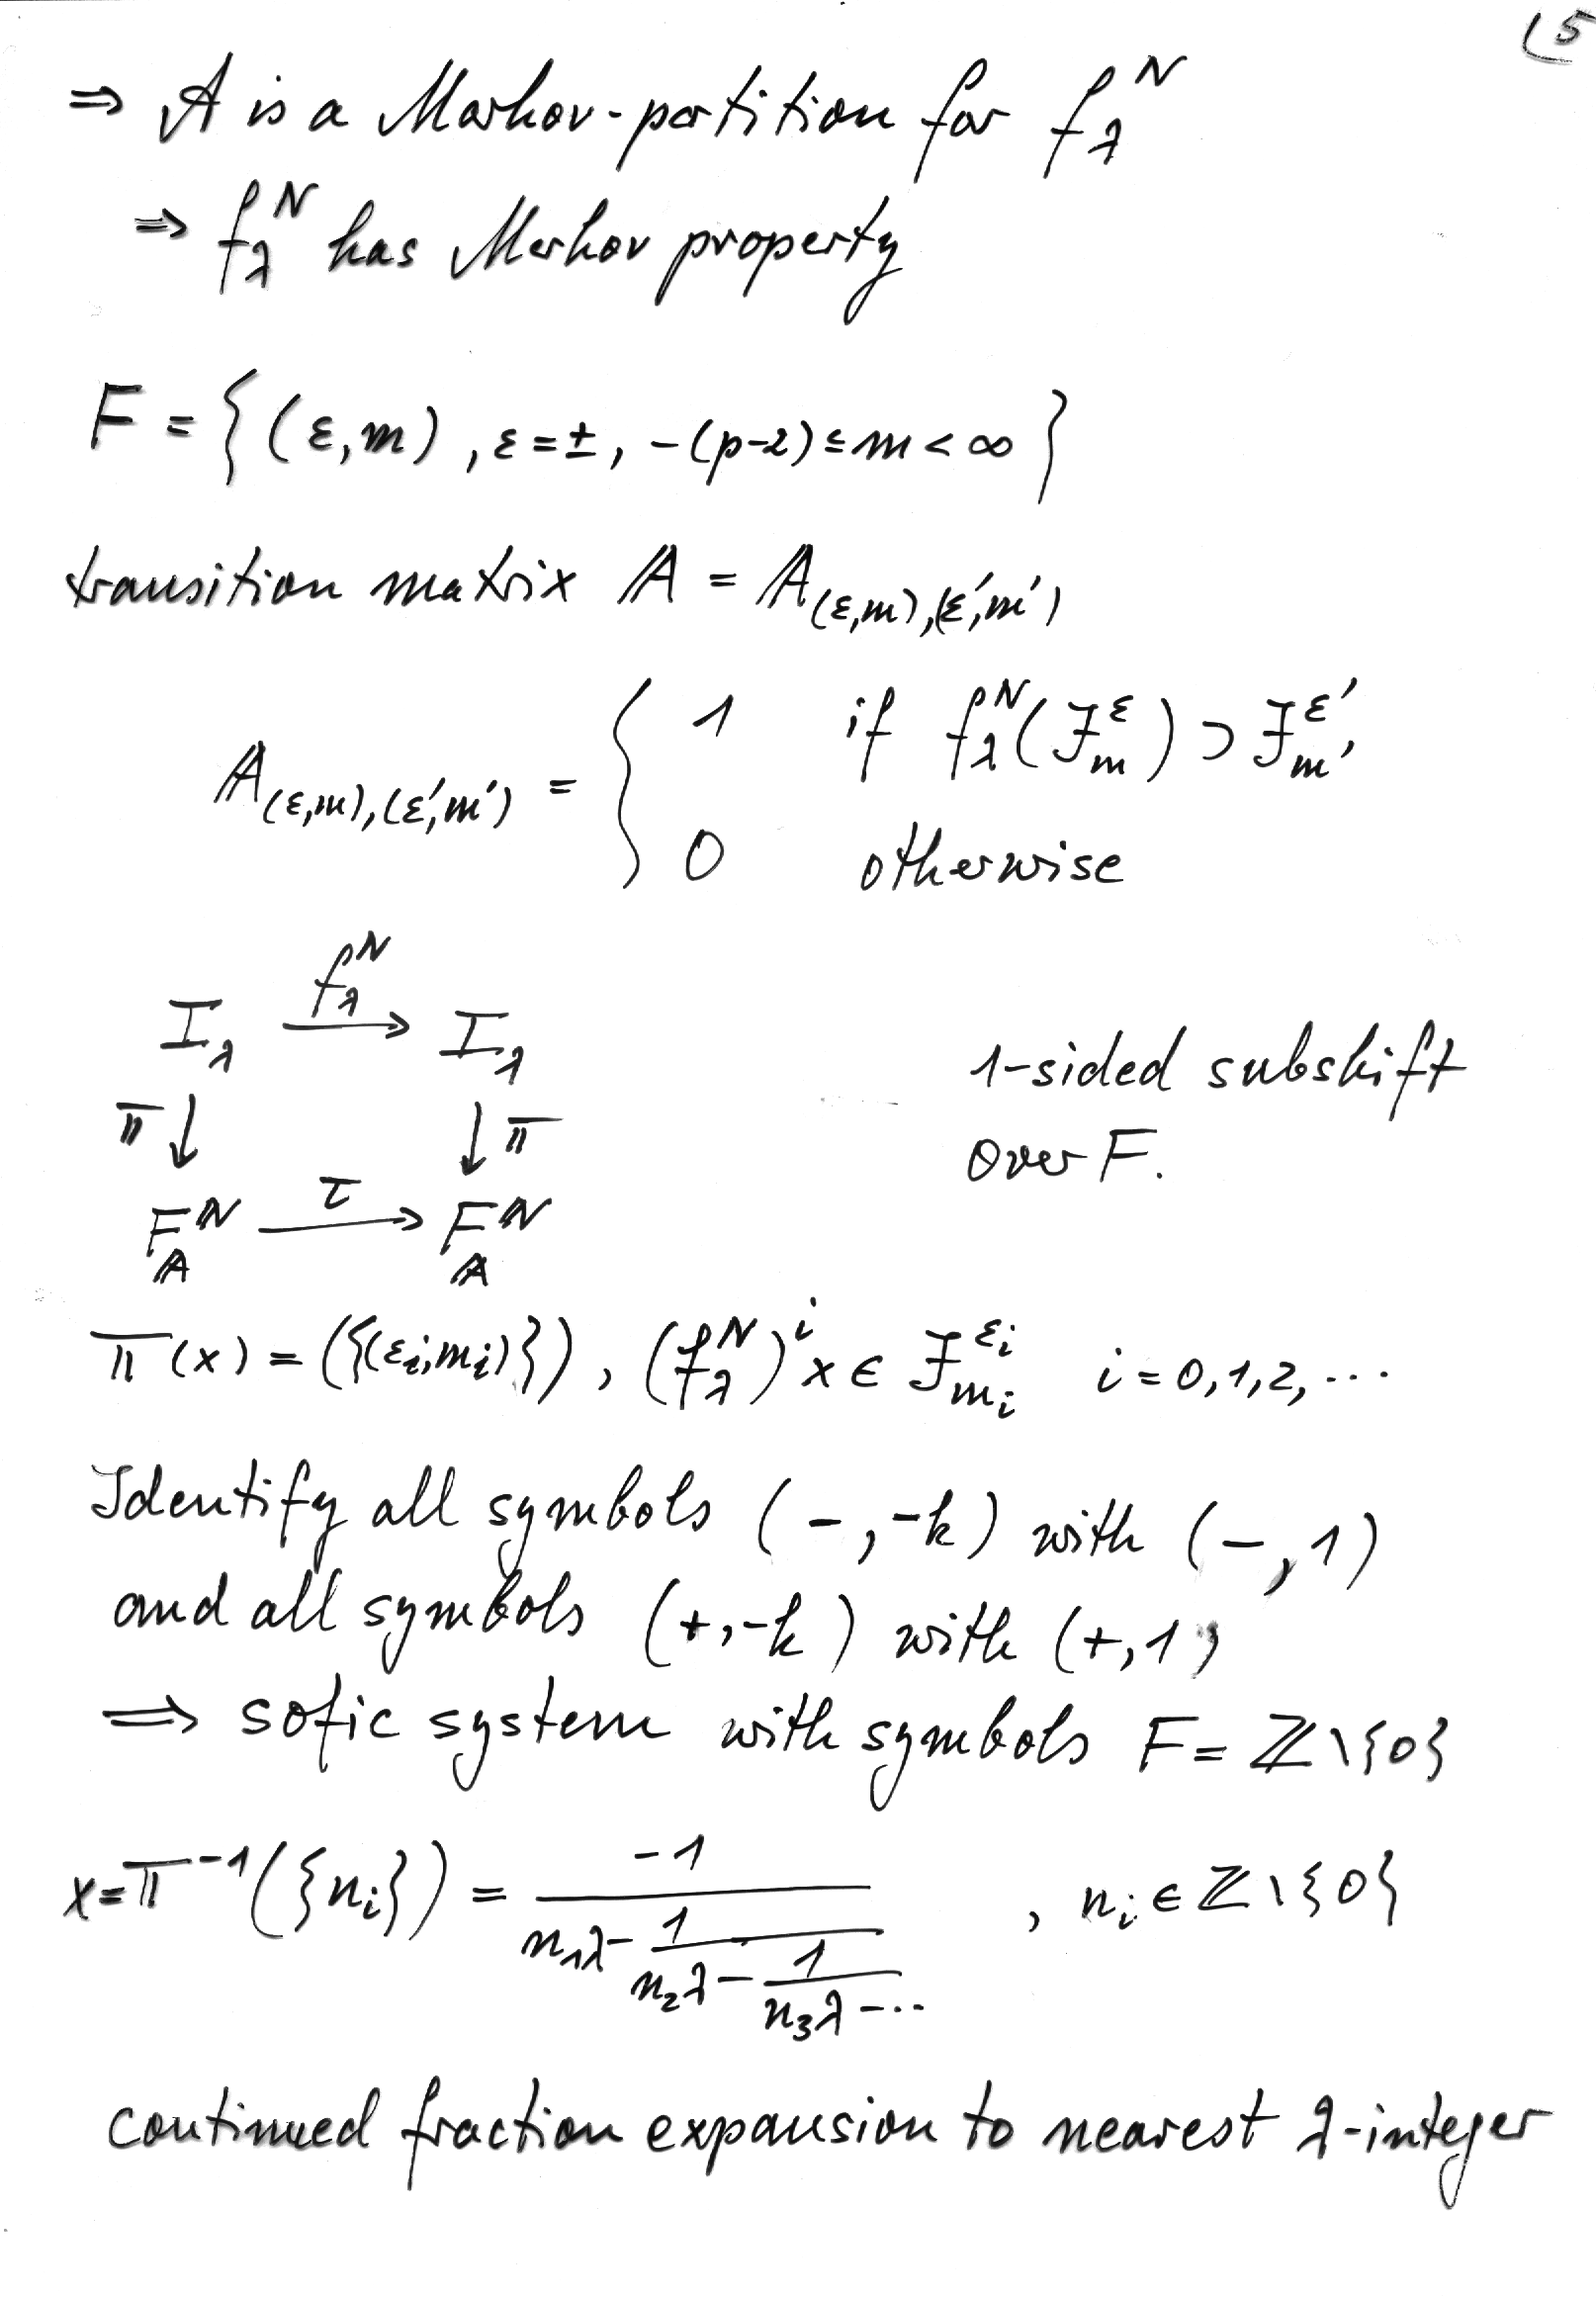 (5
⇒ 𝔸 is a Markov-partition for f_λ^N
⇒ f_λ^N has Markov property
F = { (ε,m) , ε=±, -(p-2) ≤ m < ∞ }
transition matrix 𝔸 = 𝔸_(ε,m),(ε',m')
𝔸_(ε,m),(ε',m') = { 1 if f_λ^N(J_m^ε) ⊃ J_m'^ε'
0 otherwise
I_λ —f_λ^N→ I_λ
π↓ ↓π
1-sided subshift
over F.
F_𝔸^ℕ —τ→ F_𝔸^ℕ
π(x) = ({(ε_i,m_i)}) , (f_λ^N)^i x ∈ J_{m_i}^{ε_i} i = 0,1,2,...
Identify all symbols (-,-k) with (-,1)
and all symbols (+,-k) with (+,1)
⇒ sofic system with symbols F = ℤ\{0}
x = π^-1({n_i}) = -1/(n_1λ - 1/(n_2λ - 1/(n_3λ - ...))) , n_i ∈ ℤ\{0}
continued fraction expansion to nearest λ-integer